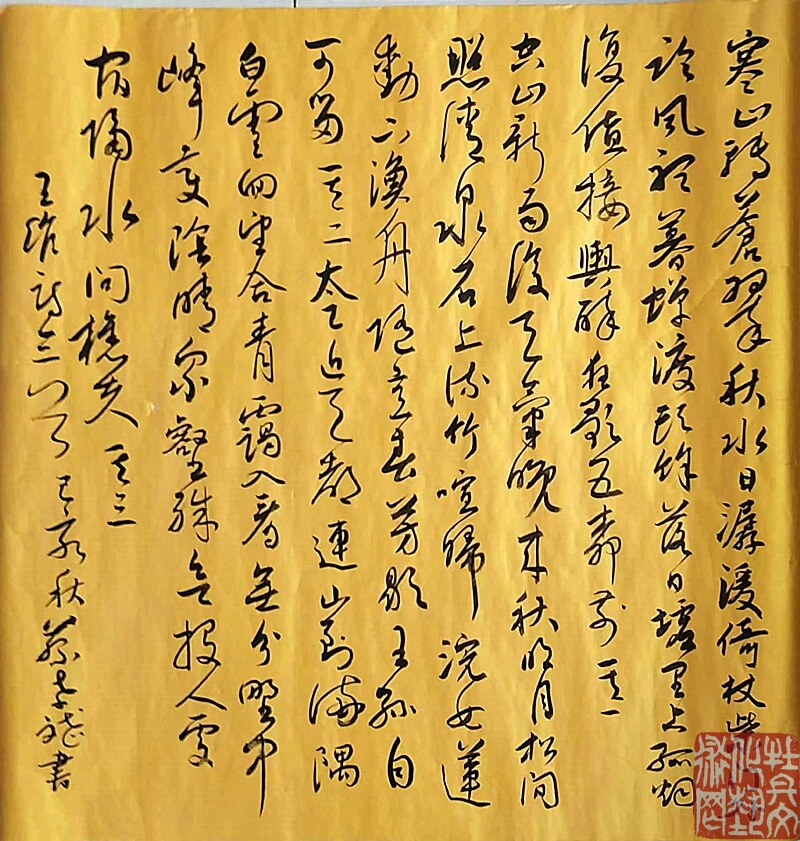 寒山轉蒼翠秋水日潺湲倚杖柴門外
臨風聽暮蟬渡頭餘落日墟里上孤烟
復值接輿醉狂歌五柳前其一
空山新雨後天氣晚來秋明月松間
照清泉石上流竹喧歸浣女蓮
動下漁舟隨意春芳歇王孫自
可留其二太乙近天都連山到海隅
白雲回望合青靄入看無分野中
峰變陰晴衆壑殊欲投人處
宿隔水問樵夫其三
王維詩三首己亥秋蔡龍書